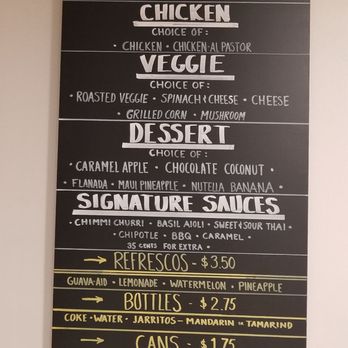 CHICKEN
CHOICE OF:
· CHICKEN · CHICKEN AL PASTOR
VEGGIE
CHOICE OF:
· ROASTED VEGGIE · SPINACH & CHEESE · CHEESE
· GRILLED CORN · MUSHROOM
DESSERT
CHOICE OF:
· CARAMEL APPLE · CHOCOLATE COCONUT ·
· FLANADA · MAUI PINEAPPLE · NUTELLA BANANA ·
SIGNATURE SAUCES
· CHIMMI CHURRI · BASIL AIOLI · SWEET & SOUR THAI ·
· CHIPOTLE · BBQ · CARAMEL ·
35 CENTS FOR EXTRA ·
→ REFRESCOS - $3.50
GUAVA-AID · LEMONADE · WATERMELON · PINEAPPLE
→ BOTTLES - $2.75
COKE - WATER - JARRITOS - MANDARIN OR TAMARIND
→ CANS - $1.75